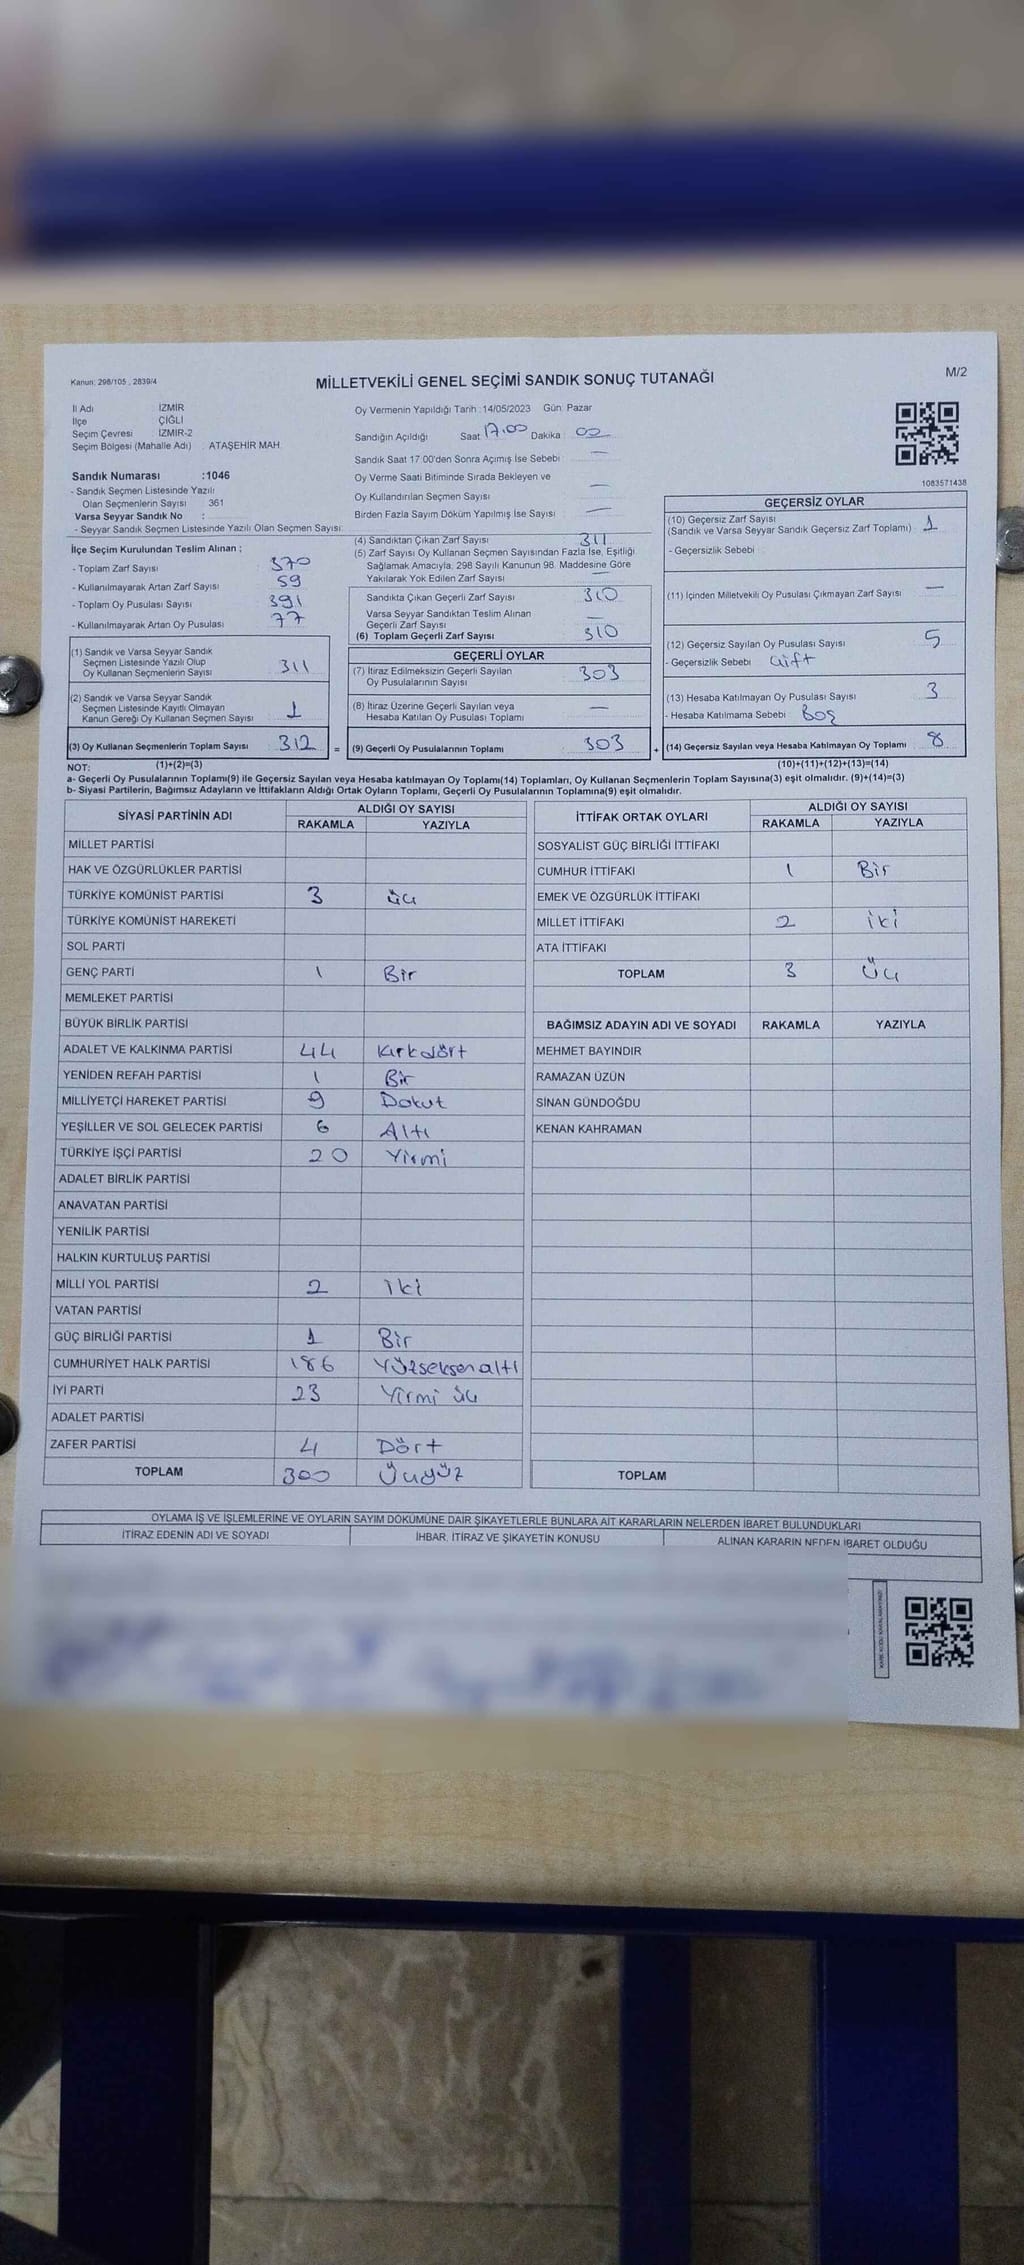 Kanun: 298/105 , 2839/4
MİLLETVEKİLİ GENEL SEÇİMİ SANDIK SONUÇ TUTANAĞI
M/2
İl Adı İZMİR
İlçe ÇİĞLİ
Seçim Çevresi İZMİR-2
Seçim Bölgesi (Mahalle Adı) : ATAŞEHİR MAH.
Oy Vermenin Yapıldığı Tarih :14/05/2023 Gün: Pazar
Sandığın Açıldığı Saat 17.00 Dakika : 00
Sandık Saat 17:00'den Sonra Açımış İse Sebebi : —
Oy Verme Saati Bitiminde Sırada Bekleyen ve
Oy Kullandırılan Seçmen Sayısı —
Birden Fazla Sayım Döküm Yapılmış İse Sayısı : —
1083571438
Sandık Numarası :1046
- Sandık Seçmen Listesinde Yazılı
Olan Seçmenlerin Sayısı : 361
Varsa Seyyar Sandık No :
- Seyyar Sandık Seçmen Listesinde Yazılı Olan Seçmen Sayısı:
İlçe Seçim Kurulundan Teslim Alınan :
- Toplam Zarf Sayısı : 370
- Kullanılmayarak Artan Zarf Sayısı : 59
- Toplam Oy Pusulası Sayısı : 391
- Kullanılmayarak Artan Oy Pusulası : 77
(1) Sandık ve Varsa Seyyar Sandık
Seçmen Listesinde Yazılı Olup
Oy Kullanan Seçmenlerin Sayısı : 311
(2) Sandık ve Varsa Seyyar Sandık
Seçmen Listesinde Kayıtlı Olmayan
Kanun Gereği Oy Kullanan Seçmen Sayısı : 1
(3) Oy Kullanan Seçmenlerin Toplam Sayısı : 312 =
(4) Sandıktan Çıkan Zarf Sayısı : 311
(5) Zarf Sayısı Oy Kullanan Seçmen Sayısından Fazla İse, Eşitliği
Sağlamak Amacıyla, 298 Sayılı Kanunun 98. Maddesine Göre
Yakılarak Yok Edilen Zarf Sayısı : —
Sandıkta Çıkan Geçerli Zarf Sayısı : 310
Varsa Seyyar Sandıktan Teslim Alınan
Geçerli Zarf Sayısı : —
(6) Toplam Geçerli Zarf Sayısı : 310
GEÇERLİ OYLAR
(7) İtiraz Edilmeksizin Geçerli Sayılan
Oy Pusulalarının Sayısı : 303
(8) İtiraz Üzerine Geçerli Sayılan veya
Hesaba Katılan Oy Pusulası Toplamı : —
(9) Geçerli Oy Pusulalarının Toplamı : 303 +
GEÇERSİZ OYLAR
(10) Geçersiz Zarf Sayısı
(Sandık ve Varsa Seyyar Sandık Geçersiz Zarf Toplamı) : 1
- Geçersizlik Sebebi :
(11) İçinden Milletvekili Oy Pusulası Çıkmayan Zarf Sayısı : —
(12) Geçersiz Sayılan Oy Pusulası Sayısı : 5
- Geçersizlik Sebebi : Çift
(13) Hesaba Katılmayan Oy Pusulası Sayısı : 3
- Hesaba Katılmama Sebebi : Boş
(14) Geçersiz Sayılan veya Hesaba Katılmayan Oy Toplamı : 8
NOT: (1)+(2)=(3) (10)+(11)+(12)+(13)=(14)
a- Geçerli Oy Pusulalarının Toplamı(9) ile Geçersiz Sayılan veya Hesaba katılmayan Oy Toplamı(14) Toplamları, Oy Kullanan Seçmenlerin Toplam Sayısına(3) eşit olmalıdır. (9)+(14)=(3)
b- Siyasi Partilerin, Bağımsız Adayların ve İttifakların Aldığı Ortak Oyların Toplamı, Geçerli Oy Pusulalarının Toplamına(9) eşit olmalıdır.
SİYASİ PARTİNİN ADI ALDIĞI OY SAYISI
RAKAMLA YAZIYLA
MİLLET PARTİSİ
HAK VE ÖZGÜRLÜKLER PARTİSİ
TÜRKİYE KOMÜNİST PARTİSİ 3 üç
TÜRKİYE KOMÜNİST HAREKETİ
SOL PARTİ
GENÇ PARTİ 1 Bir
MEMLEKET PARTİSİ
BÜYÜK BİRLİK PARTİSİ
ADALET VE KALKINMA PARTİSİ 44 Kırkdört
YENİDEN REFAH PARTİSİ 1 Bir
MİLLİYETÇİ HAREKET PARTİSİ 9 Dokuz
YEŞİLLER VE SOL GELECEK PARTİSİ 6 Altı
TÜRKİYE İŞÇİ PARTİSİ 20 Yirmi
ADALET BİRLİK PARTİSİ
ANAVATAN PARTİSİ
YENİLİK PARTİSİ
HALKIN KURTULUŞ PARTİSİ
MİLLİ YOL PARTİSİ 2 iki
VATAN PARTİSİ
GÜÇ BİRLİĞİ PARTİSİ 1 Bir
CUMHURİYET HALK PARTİSİ 186 Yüzseksenaltı
İYİ PARTİ 23 Yirmi üç
ADALET PARTİSİ
ZAFER PARTİSİ 4 Dört
TOPLAM 300 Üçyüz
İTTİFAK ORTAK OYLARI ALDIĞI OY SAYISI
RAKAMLA YAZIYLA
SOSYALİST GÜÇ BİRLİĞİ İTTİFAKI
CUMHUR İTTİFAKI 1 Bir
EMEK VE ÖZGÜRLÜK İTTİFAKI
MİLLET İTTİFAKI 2 iki
ATA İTTİFAKI
TOPLAM 3 Üç
BAĞIMSIZ ADAYIN ADI VE SOYADI RAKAMLA YAZIYLA
MEHMET BAYINDIR
RAMAZAN ÜZÜN
SİNAN GÜNDOĞDU
KENAN KAHRAMAN
TOPLAM
OYLAMA İŞ VE İŞLEMLERİNE VE OYLARIN SAYIM DÖKÜMÜNE DAİR ŞİKAYETLERLE BUNLARA AİT KARARLARIN NELERDEN İBARET BULUNDUKLARI
İTİRAZ EDENİN ADI VE SOYADI İHBAR, İTİRAZ VE ŞİKAYETİN KONUSU ALINAN KARARIN NEDEN İBARET OLDUĞU